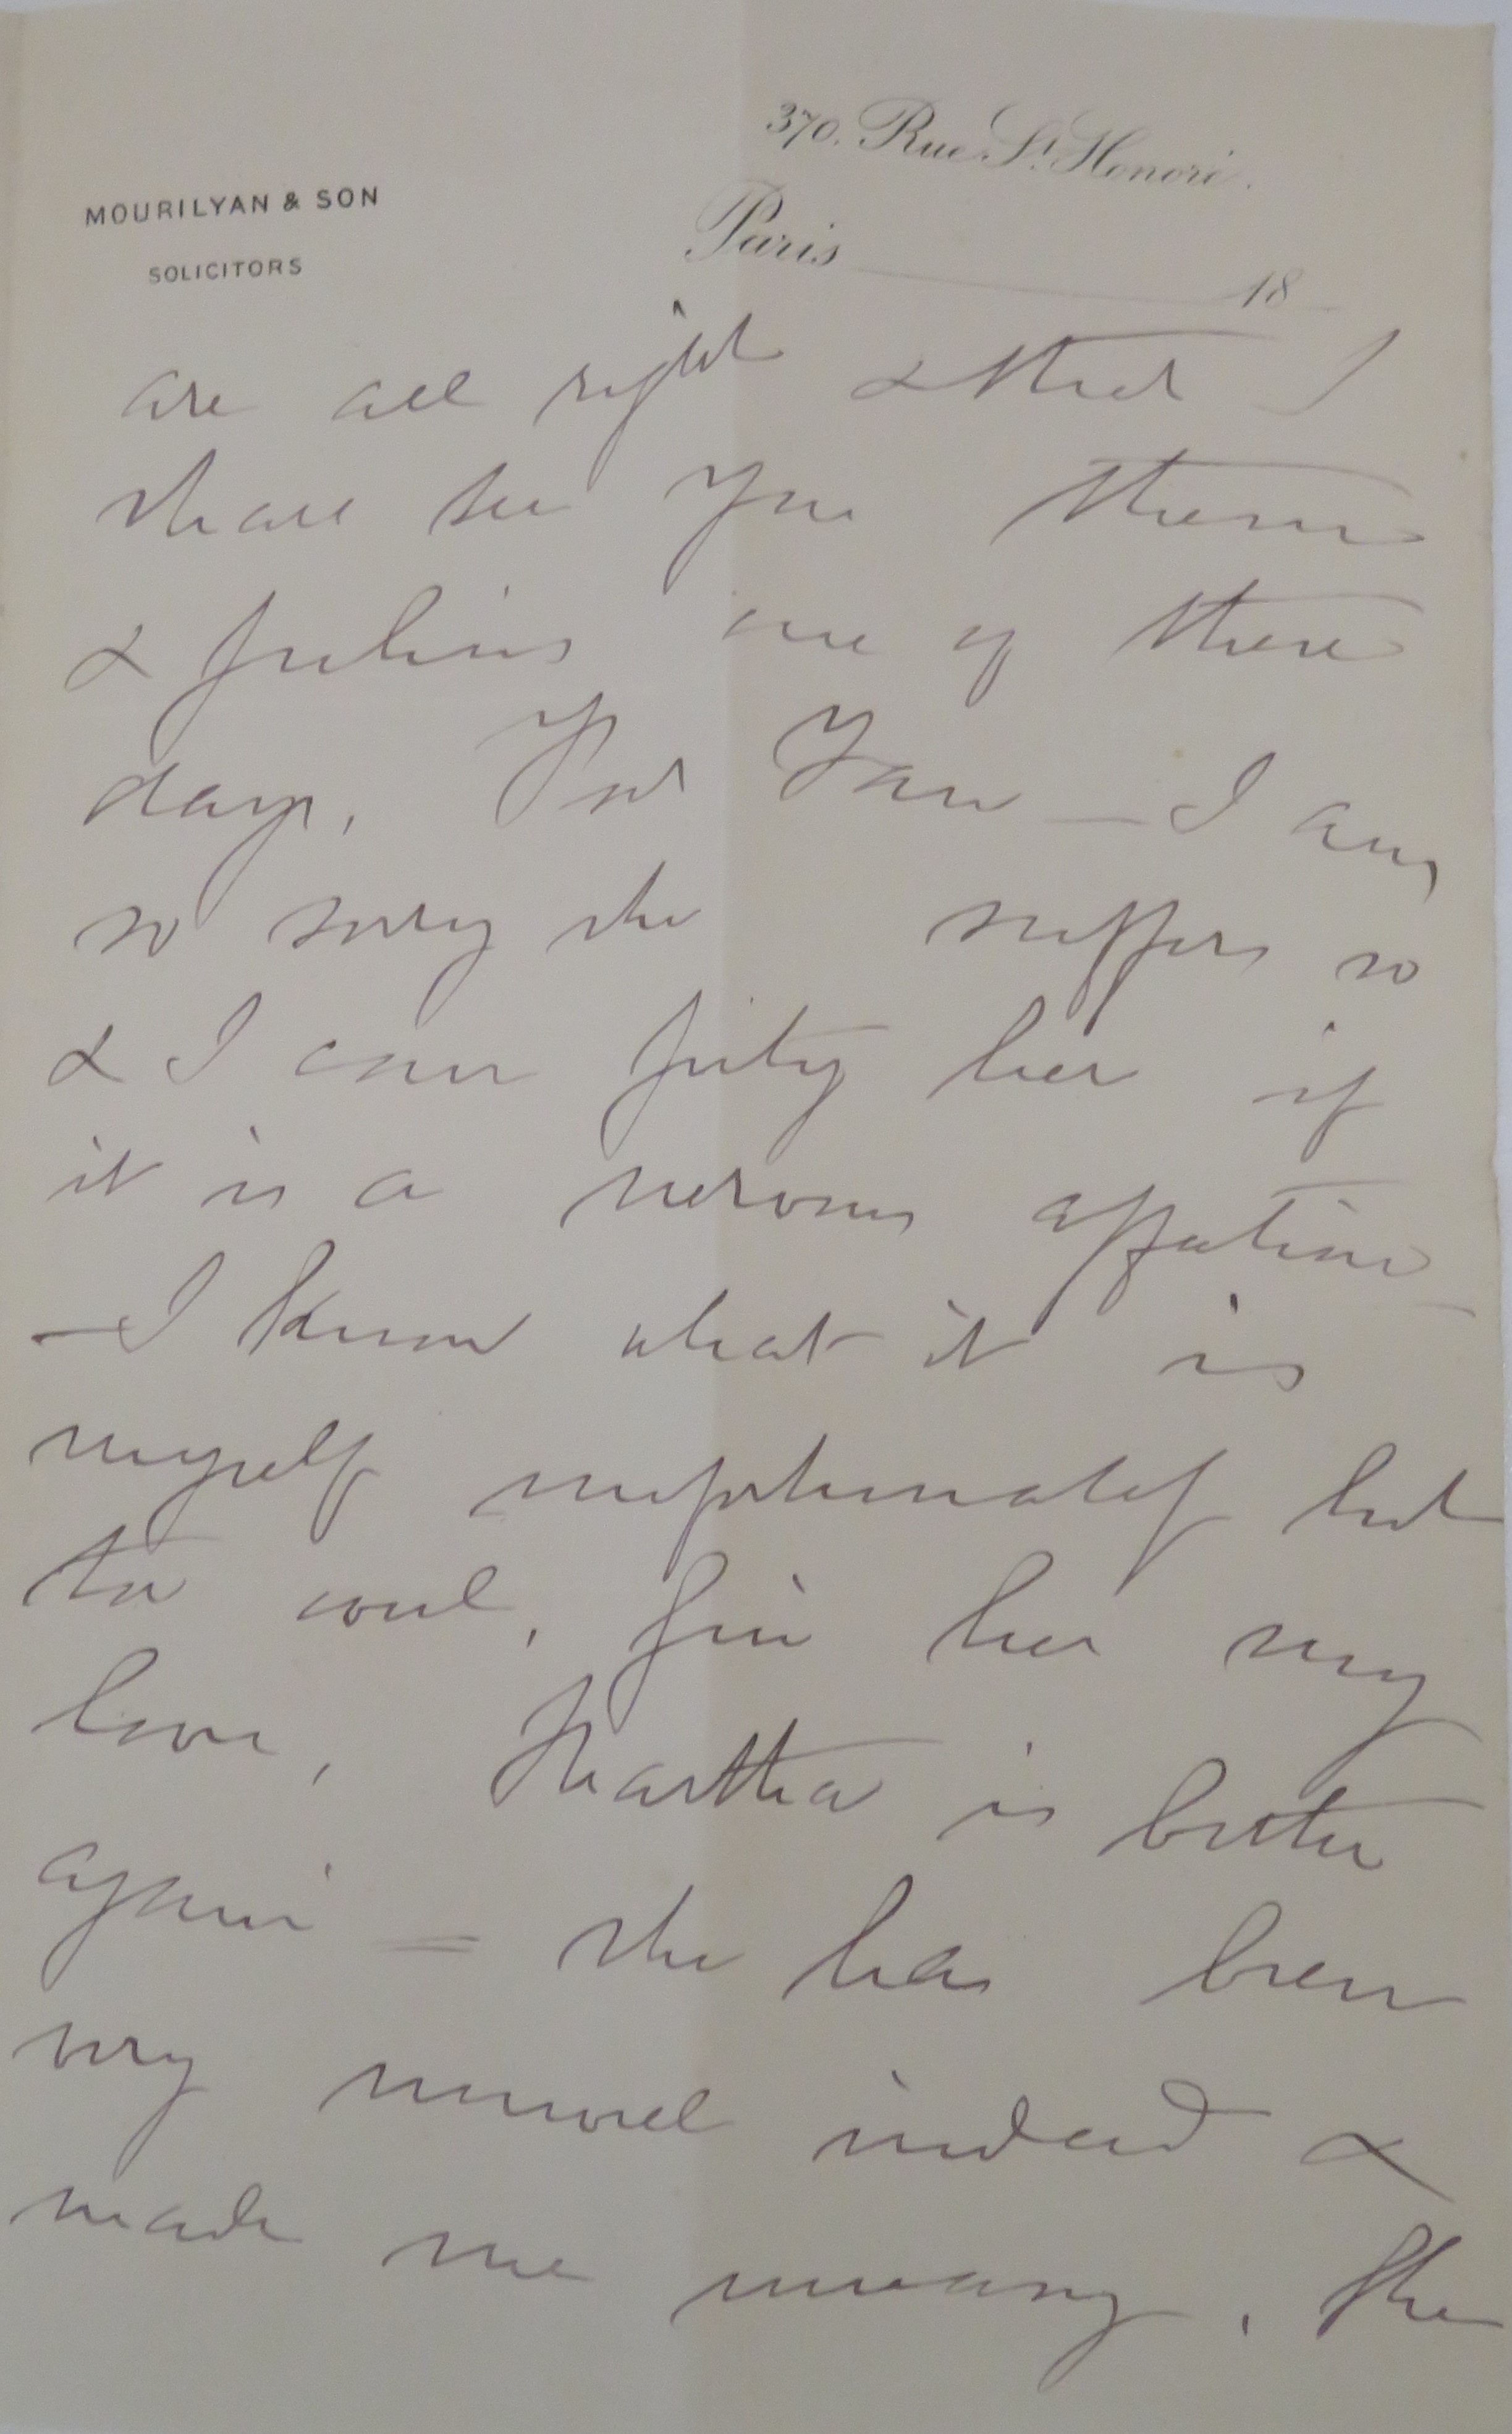 370. Rue St. Honoré.
MOURILYAN & SON
Paris 18
SOLICITORS
are all right & that I
shall see you
& Julius one of these
days. Poor Jane – I am
so sorry she suffers so
& I can pity her if
it is a nervous affection
– I know what it is
myself unfortunately but
too well. Give her my
love. Martha is better
again = she has been
very unwell indeed &
made me uneasy. The